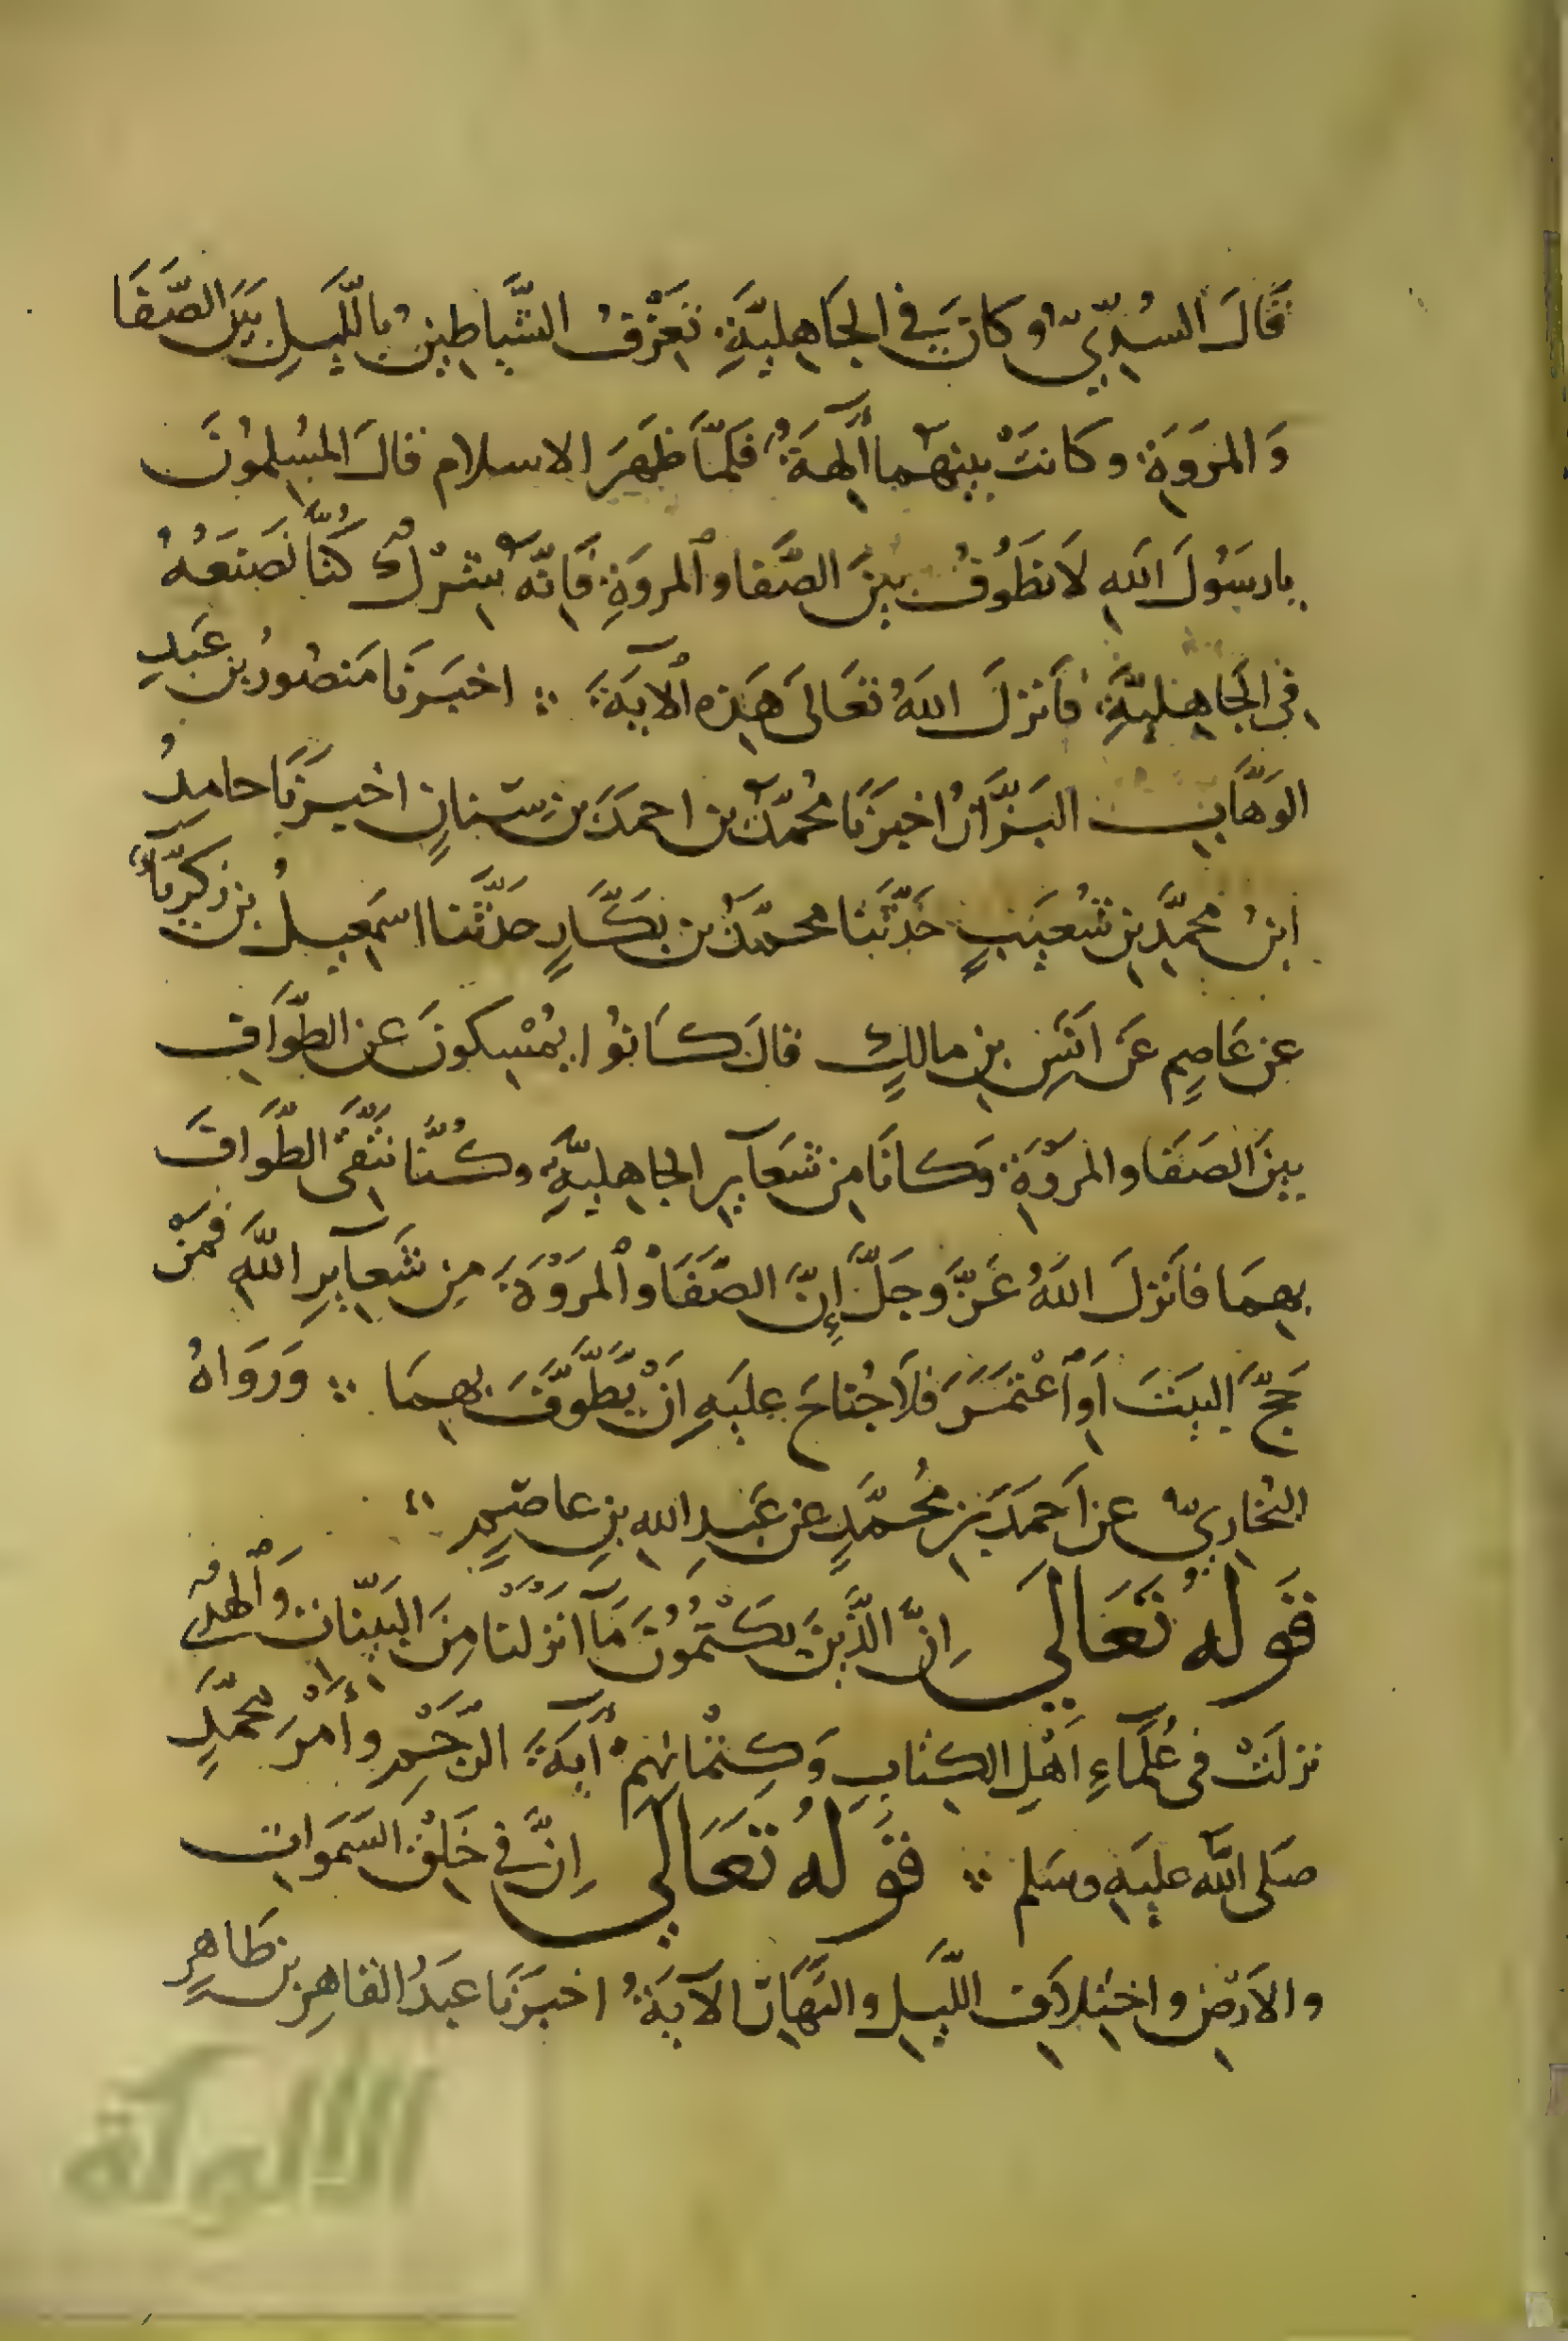 قَالَ السُدِّيّ وكانَ في الجَاهِليَّةِ تَعْزِفُ الشَّياطِينُ باللّيلِ بَيَن الصَّفَا
وَالمَروَةِ وكانَتْ بينهما آلِهَةٌ فَلمَّا ظَهَرَ الاسلام قالَ المسُلِمُونَ
يارسَوُلَ اللهِ لَا نطَوُفُ بينَ الصَّفا والمروَةِ فَانّه شِرْكٌ كُنَّا نَصنَعُهُ
فِى الجَاهِليَّةِ فأنزلَ اللهُ تعَالَى هَذِه الآيَةَ ∴ اخبَرنَا مَنصُورُ بن عَبدِ
الوَهَّابِ البَزَّازُ اخبَرنَا مُحمّدُ بن احمدَ بن سِنانٍ اخبرنَا حامِدُ
ابنُ محمَّدِ بنِ شُعَيبٍ حَدّثَنا محمّدُ بن بَكَّارٍ حدّثَنا اسمَعِيلُ بن زكريَّا
عن عَاصِمٍ عَن اَنَسِ بنِ مالكٍ قالَ كَانوُا يُمْسِكونَ عنِ الطَّوَافِ
بينَ الصَفَا والمروَةِ وَكانَا مِن شَعَآيرِ الجاهِليَّةِ وكُنَّا نَتَّقى الطَّوَافَ
بِهِمَا فأنزلَ اللهُ عَزَّ وَجَلَّ إِنَّ الصَّفَا وَالْمَرْوَةَ مِن شَعآيرِ اللَّهِ فَمَنْ
حَجَّ البَيتَ اَوِ اعْتَمَرَ فَلاَ جُناحَ عليَهِ اَنْ يَّطَّوَّفَ بِهِمَا ∴ وَرَوَاهُ
البُخارِيّ عن اَحمَدَ بنِ مُحمَّدٍ عن عَبدِ اللهِ بنِ عاصِمٍ
قَولهُ تَعَالَى اِنَّ الَّذينَ يَكْتُمُونَ مَآ انْزلنَا مِنَ البَيّناتِ وَالهُدى
نزلَتْ فى عُلَمآءِ اَهْلِ الكِتَابِ وَكِتْمانِهِم آيَةَ الرَّجْمِ وأَمْرَ محمَّدٍ
صَلى الله عليَهِ وسَلم ∴ قوَلهُ تعَالَى اِنَّ في خَلْقِ السَمَوَاتِ
والاَرضِ واختِلاَفِ اللَّيلِ والنَّهَارِ الآيَةُ اخبَرنَا عبَدُ القاهِرِ بن طَاهِرٍ
الألوكة